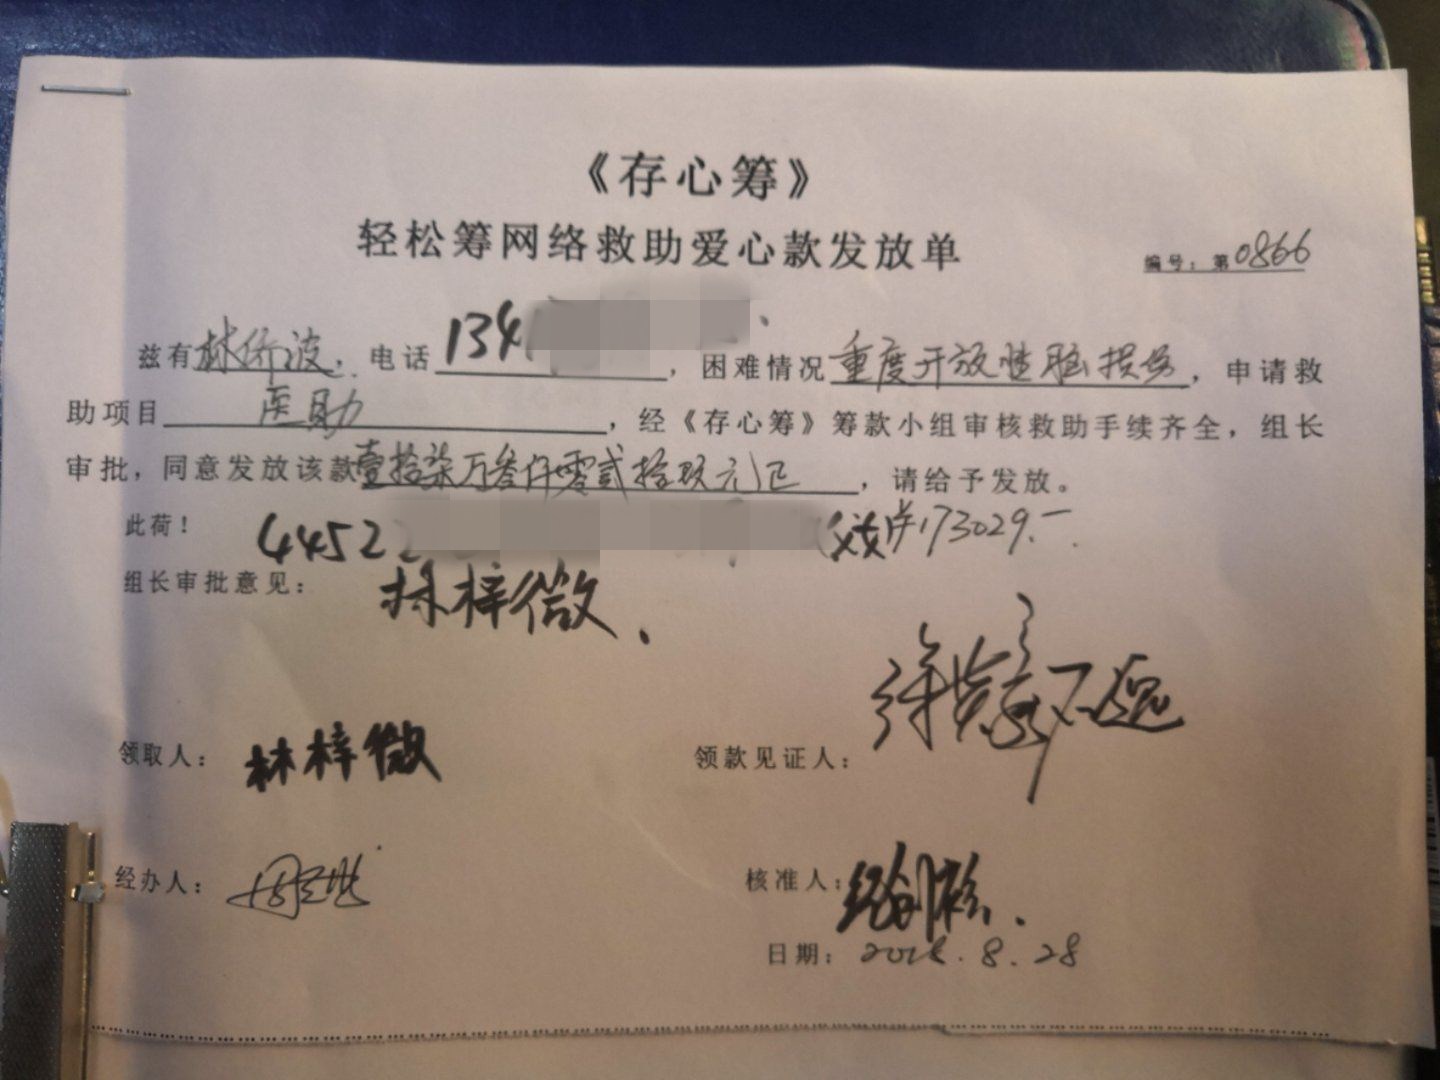 《存心筹》
轻松筹网络救助爱心款发放单
编号：第0866
兹有林侨波，电话134，困难情况重度开放性脑损伤，申请救
助项目医助，经《存心筹》筹款小组审核救助手续齐全，组长
审批，同意发放该款壹拾柒万叁仟零贰拾玖元正，请给予发放。
此荷！
4452 ¥173029.一
组长审批意见：林梓微.
领取人：林梓微
领款见证人：
经办人：
核准人：
日期：2018.8.28